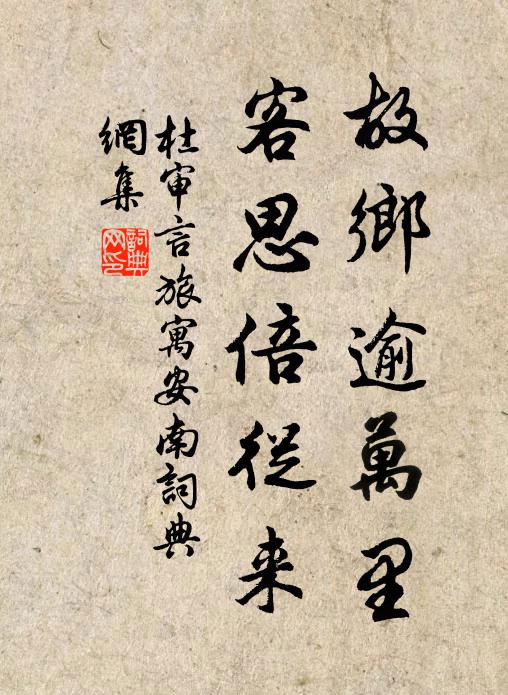 故鄉逾萬里
客思倍從来
杜审言旅寓安南詞典
網集
詞典网印